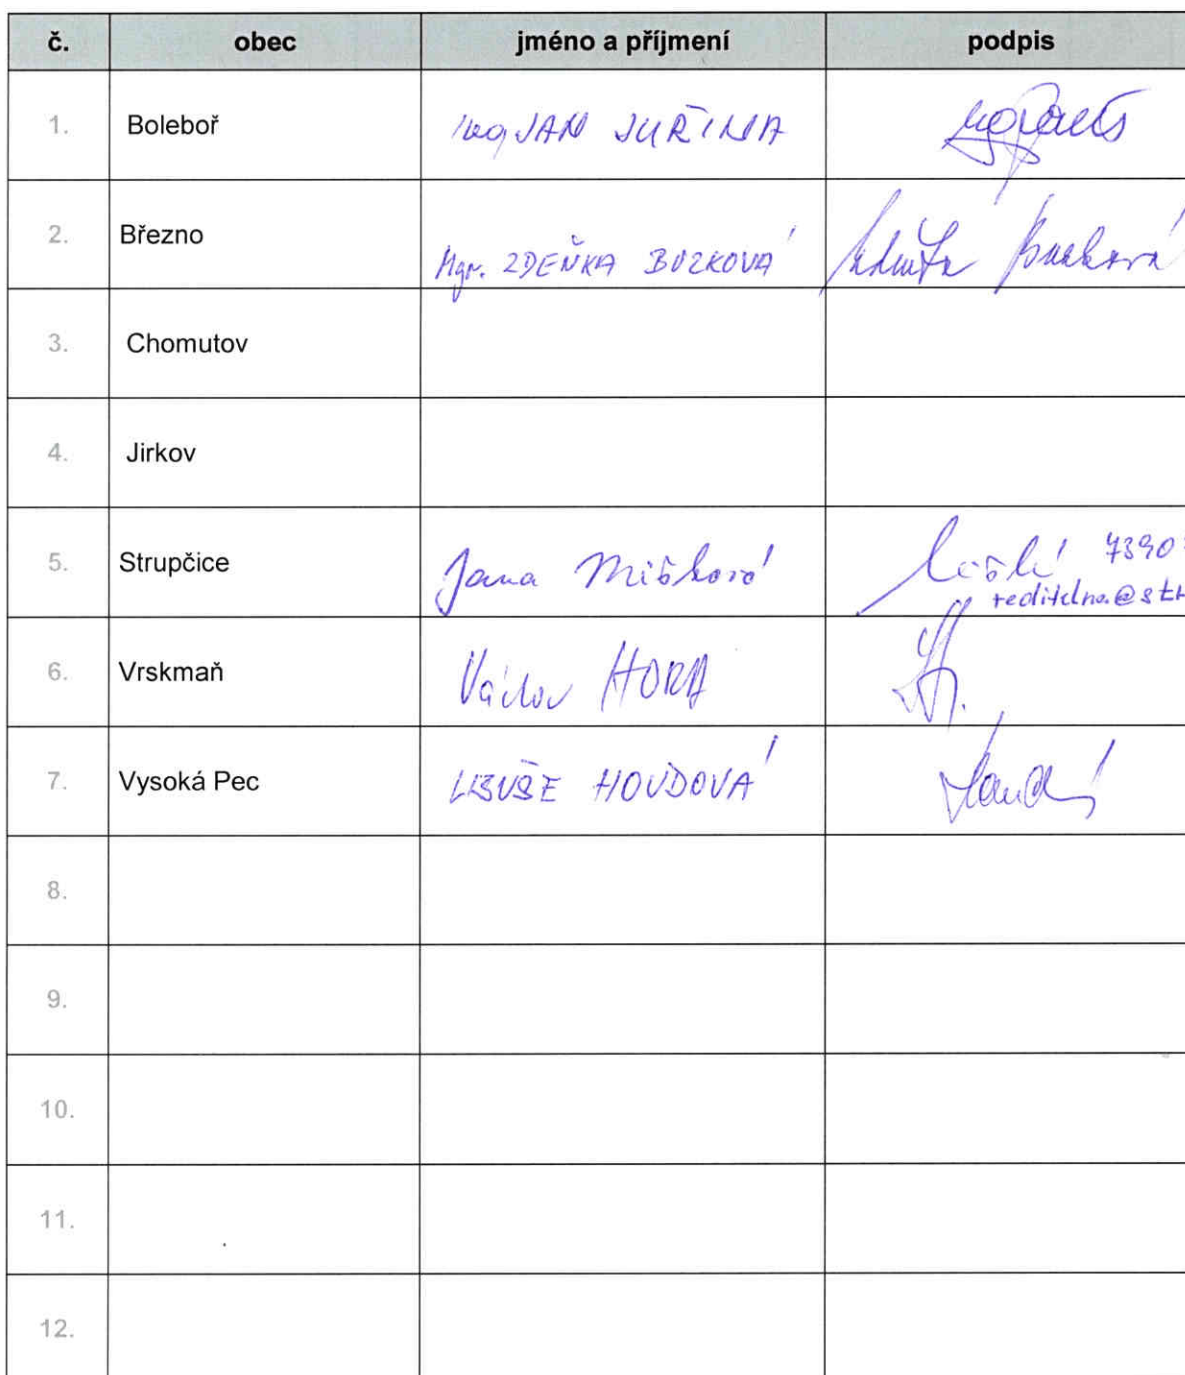 č. obec jméno a příjmení podpis
1. Boleboř Ing JAN JUŘINA
2. Březno Mgr. ZDEŇKA BUZKOVÁ
3. Chomutov
4. Jirkov
5. Strupčice Jana Mišková 7390
reditelna@str
6. Vrskmaň Václav HORA
7. Vysoká Pec LIBUŠE HOUDOVÁ
8.
9.
10.
11.
12.